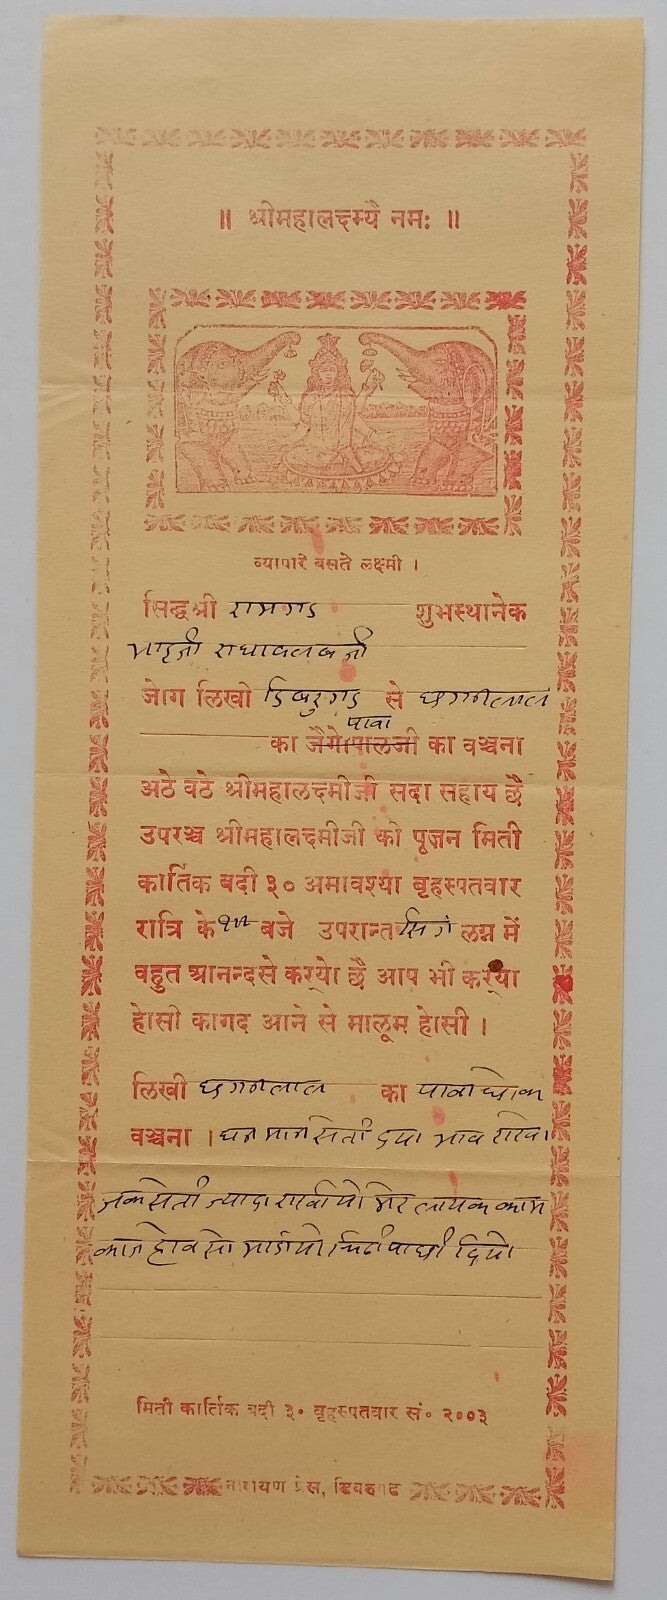 ॥ श्रीमहालक्ष्म्यै नमः ॥
व्यापारे बसते लक्ष्मी ।
सिद्धश्री रामगड शुभस्थानेक
भाइजी राधावलबजी
जोग लिखी डिबरुगड से छगनलाल
पावा
का जैगोपालजी का वञ्चना
अठे वठे श्रीमहालक्ष्मीजी सदा सहाय छै
उपरञ्च श्रीमहालक्ष्मीजी को पूजन मिती
कार्तिक बदी ३० अमावश्या बृहस्पतवार
रात्रि के बजे उपरान्त लग्न में
बहुत आनन्दसे कर्‌यो छै आप भी कर्‌या
होसी कागद आने से मालूम होसी ।
लिखी छगनलाल का पावाधोक
वञ्चना । दया भाव राखो
ज्यादा लायक काम
काज होव सो दियो
मिती कार्तिक बदी ३० बृहस्पतवार सं० २००३
नारायण प्रेस, डिबरुगढ